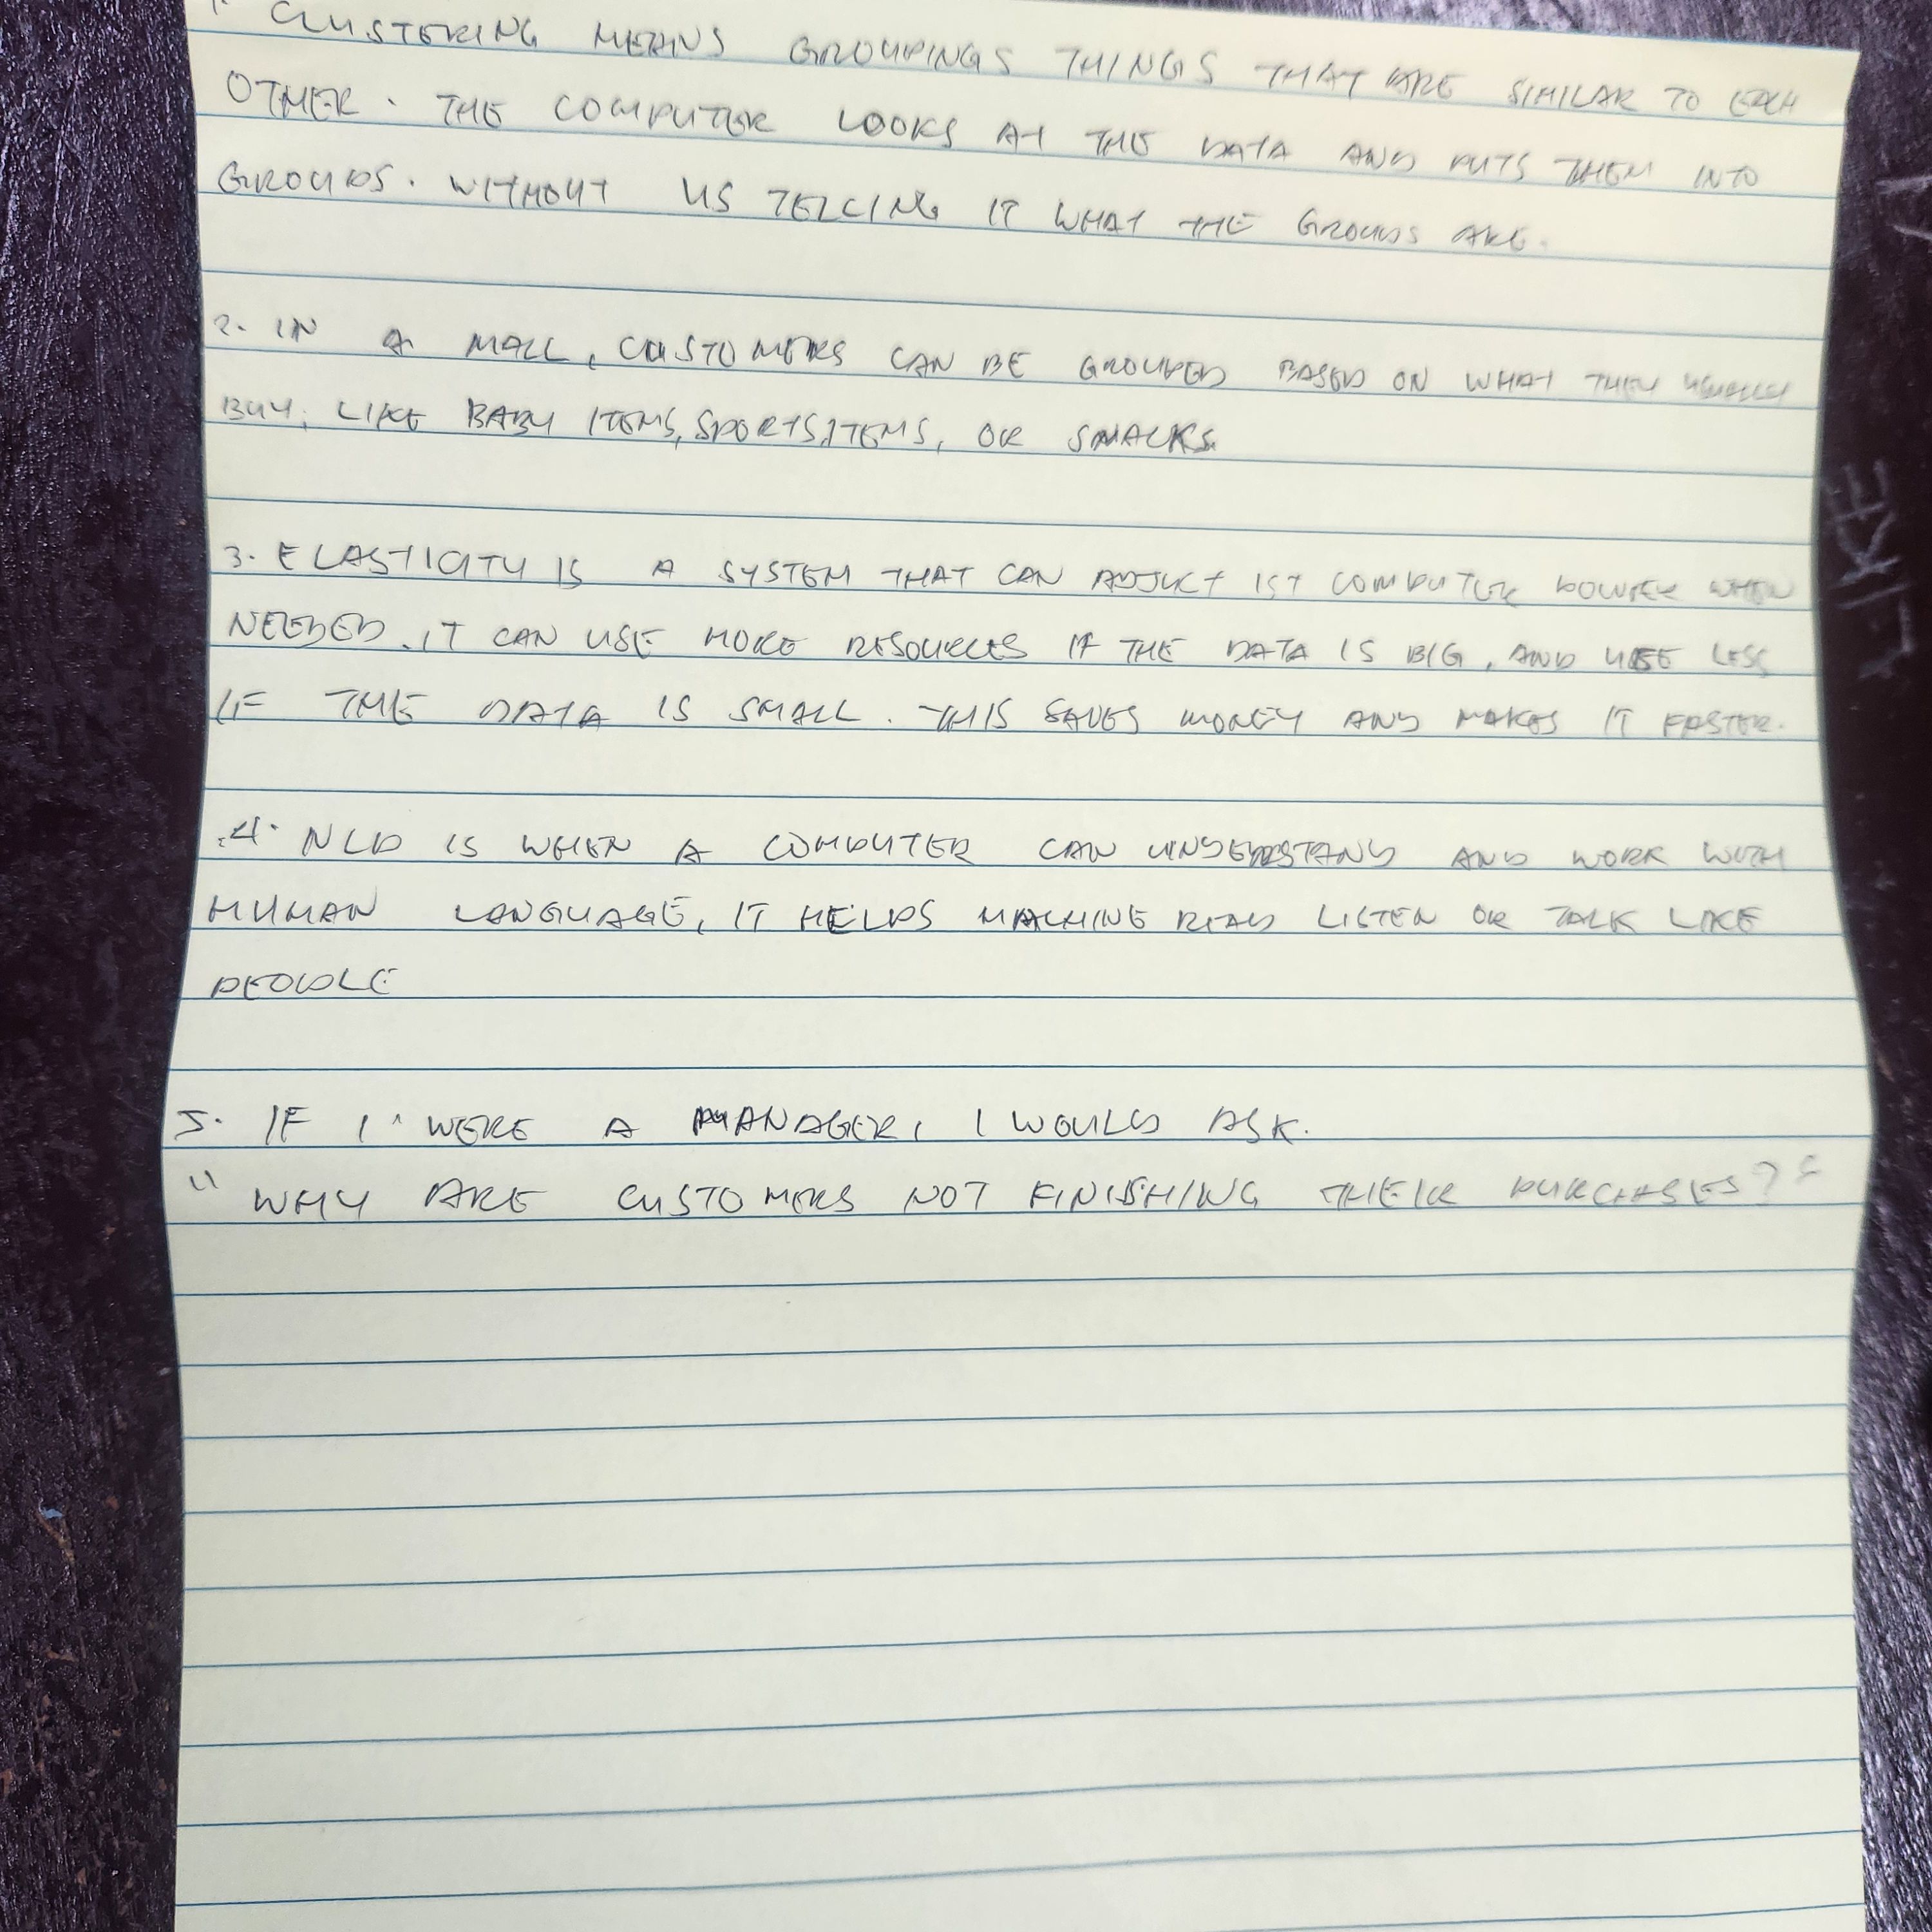 1. CLUSTERING MEANS GROUPINGS THINGS THAT ARE SIMILAR TO EACH
OTHER. THE COMPUTER LOOKS AT THE DATA AND PUTS THEM INTO
GROUPS. WITHOUT US TELLING IT WHAT THE GROUPS ARE.
2. IN A MALL, CUSTOMERS CAN BE GROUPED BASED ON WHAT THEY USUALLY
BUY, LIKE BABY ITEMS, SPORTS ITEMS, OR SNACKS.
3. ELASTICITY IS A SYSTEM THAT CAN ADJUCT IST COMPUTER POWER WHEN
NEEDED. IT CAN USE MORE RESOURCES IF THE DATA IS BIG, AND USE LESS
IF THE DATA IS SMALL. THIS SAVES MONEY AND MAKES IT FASTER.
4. NLP IS WHEN A COMPUTER CAN UNDERSTAND AND WORK WITH
HUMAN LANGUAGE, IT HELPS MACHINE READ LISTEN OR TALK LIKE
PEOPLE
5. IF I WERE A MANAGER, I WOULD ASK.
"WHY ARE CUSTOMERS NOT FINISHING THEIR PURCHASES?"
LIKE